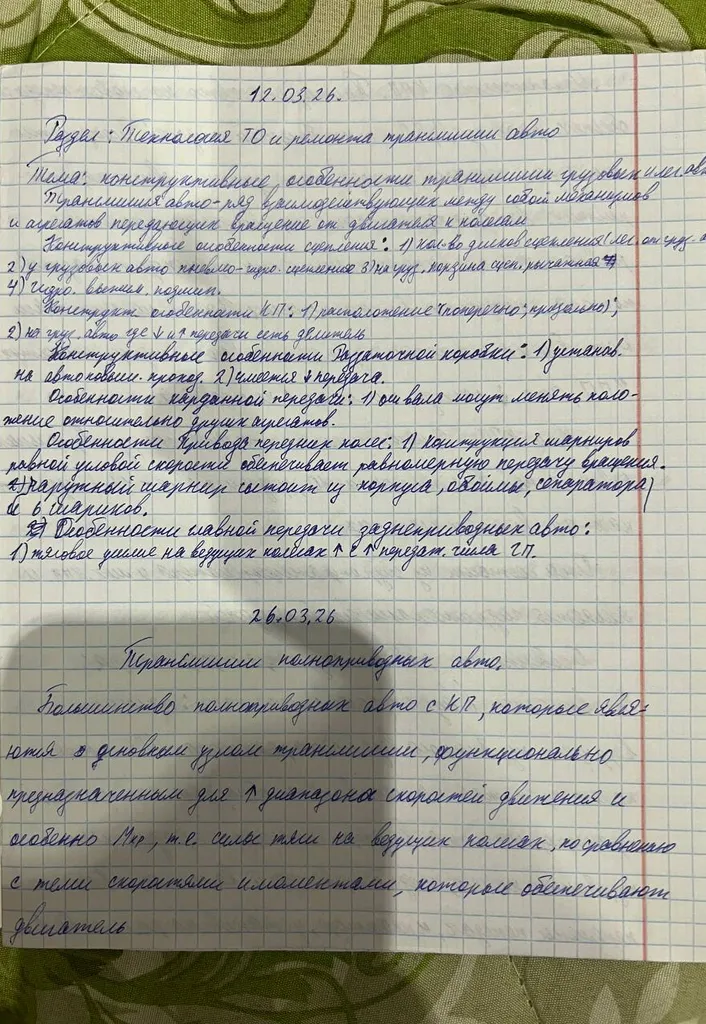 12.03.26.
Раздел: Технология ТО и ремонта трансмиссии авто
Тема: конструктивные особенности трансмиссии грузовых и лег. авт
Трансмиссия авто-ряд взаимодействующих между собой механизмов
и агрегатов передающих вращение от двигателя к колесам
Конструктивные особенности сцепления: 1) кол-во дисков сцепления (лег. от груз.
2) у грузовых авто пневмо-гидро. сцепление 3) на груз. корзина сцеп. рычажная
4) гидро. выжим. подшип.
Конструкт. особенности КП: 1) расположение (поперечно; продольно);
2) на груз. авто где ↓ и ↑ передачи есть делитель
Конструктивные особенности Раздаточной коробки: 1) установ.
на авто повыш. проход. 2) имеется ↓ передача.
Особенности карданной передачи: 1) оси вала могут менять поло-
жение относительно других агрегатов.
Особенности Привода передних колес: 1) конструкция шарниров
равной угловой скорости обеспечивает равномерную передачу вращения.
2) наружный шарнир состоит из корпуса, обоймы, сепаратора
и 6 шариков.
Особенности главной передачи заднеприводных авто:
1) тяговое усилие на ведущих колесах ↑ с ↑ передат. числа ГП.
26.03.26
Трансмиссии полноприводных авто.
Большинство полноприводных авто с КП, которые явля-
ются основным узлом трансмиссии, функционально
предназначенным для ↑ диапазона скоростей движения и
особенно Мкр, т.е. силы тяги на ведущих колесах, по сравнению
с теми скоростями и моментами, которые обеспечивают
двигатель